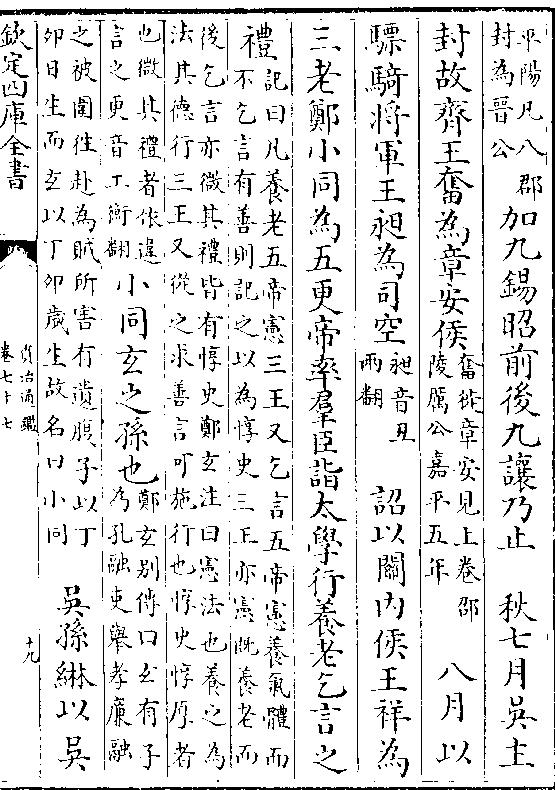 平陽凡八郡
封為晉公
加九錫昭前後九讓乃止　秋七月吳主
封故齊王奮為章安侯
奮徙章安見上卷邵
陵厲公嘉平五年
八月以
驃騎將軍王昶為司空
昶音丑
兩翻
詔以關内侯王祥為
三老鄭小同為五更帝率羣臣詣太學行養老乞言之
禮
記曰凡養老五帝憲三王又乞言五帝憲養氣體而
不乞言有善則記之以為惇史三王亦憲既養老而
後乞言亦微其禮皆有惇史鄭玄注曰憲法也養之為
法其德行三王又從之求善言可施行也惇史惇厚者
也微其禮者依違
言之更音工衡翻
小同玄之孫也
鄭玄别傳曰玄有子
為孔融吏舉孝廉融
之被圍往赴為賊所害有遺腹子以丁
卯日生而玄以丁卯歲生故名曰小同
吳孫綝以吳
欽定四庫全書
資治通鑑
卷七十七
十九